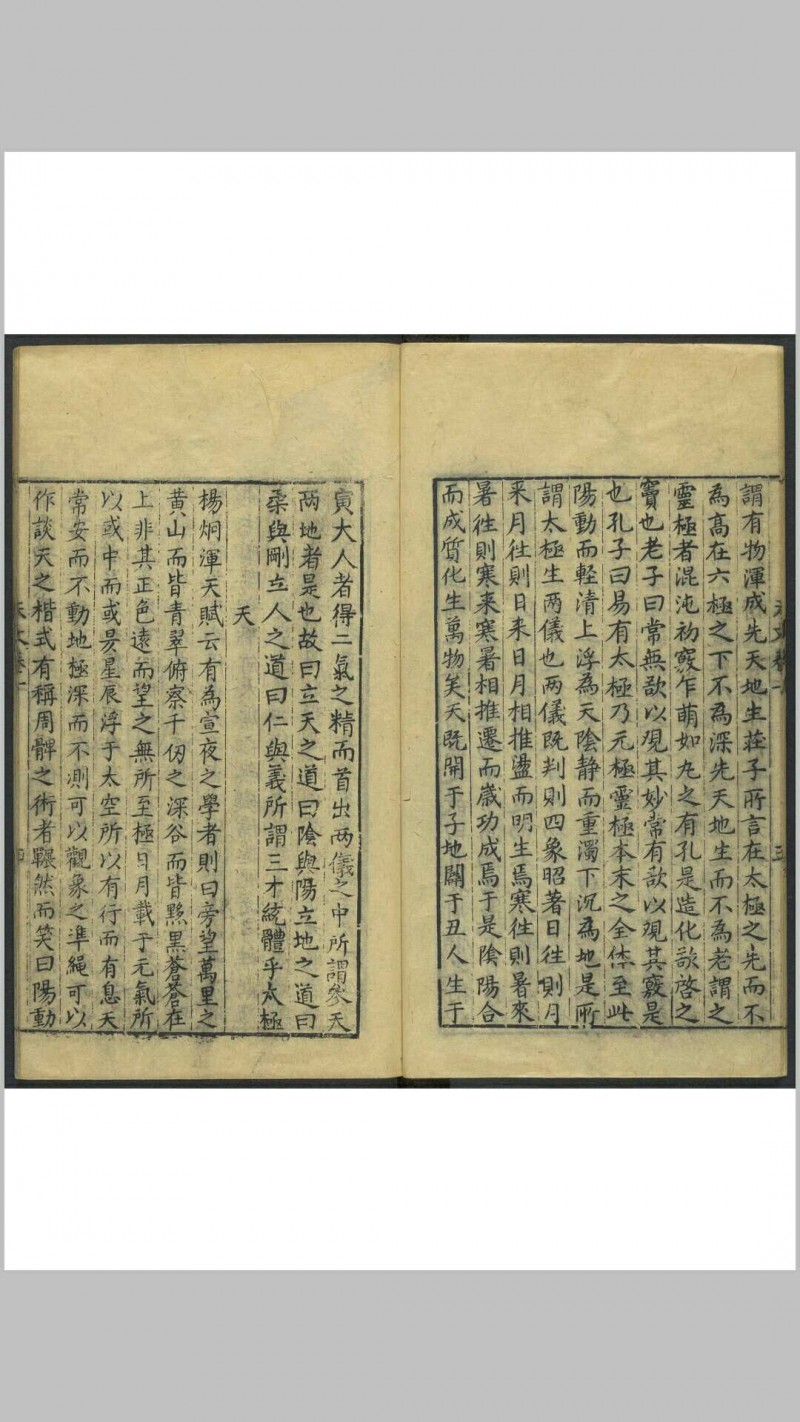 謂有物渾成先天地生莊子所言在太極之先而不
為高在六極之下不為深先天地生而不為老謂之
靈極者混沌初竅乍萌如丸之有孔是造化欲啓之
竇也老子曰常無欲以观其妙常有欲以观其竅是
也孔子曰易有太極乃元極靈極本末之全体至此
陽動而輕清上浮為天陰静而重濁下沉為地是所
謂太極生两儀也两儀既判則四象昭著日徃則月
来月徃則日来日月相推盪而明生焉寒徃則暑來
暑徃則寒来寒暑相推遷而嵗功成焉于是陰陽合
而成質化生萬物矣天既開于子地闢于丑人生于
寅大人者得二氣之精而首出两儀之中所謂參天
两地者是也故曰立天之道曰陰與陽立地之道曰
柔與剛立人之道曰仁與義所謂三才統體乎太極
天
楊炯渾天賦云有為宣夜之學者則曰旁望萬里之
黄山而皆青翠俯察千仞之深谷而皆黝黒蒼蒼在
上非其正色遠而望之無所至極日月載于元氣所
以或中而或昃星辰浮于太空所以有行而有息天
常安而不動地極深而不測可以觀象之準繩可以
作談天之楷式有稱周髀之術者冁然而笑曰陽動